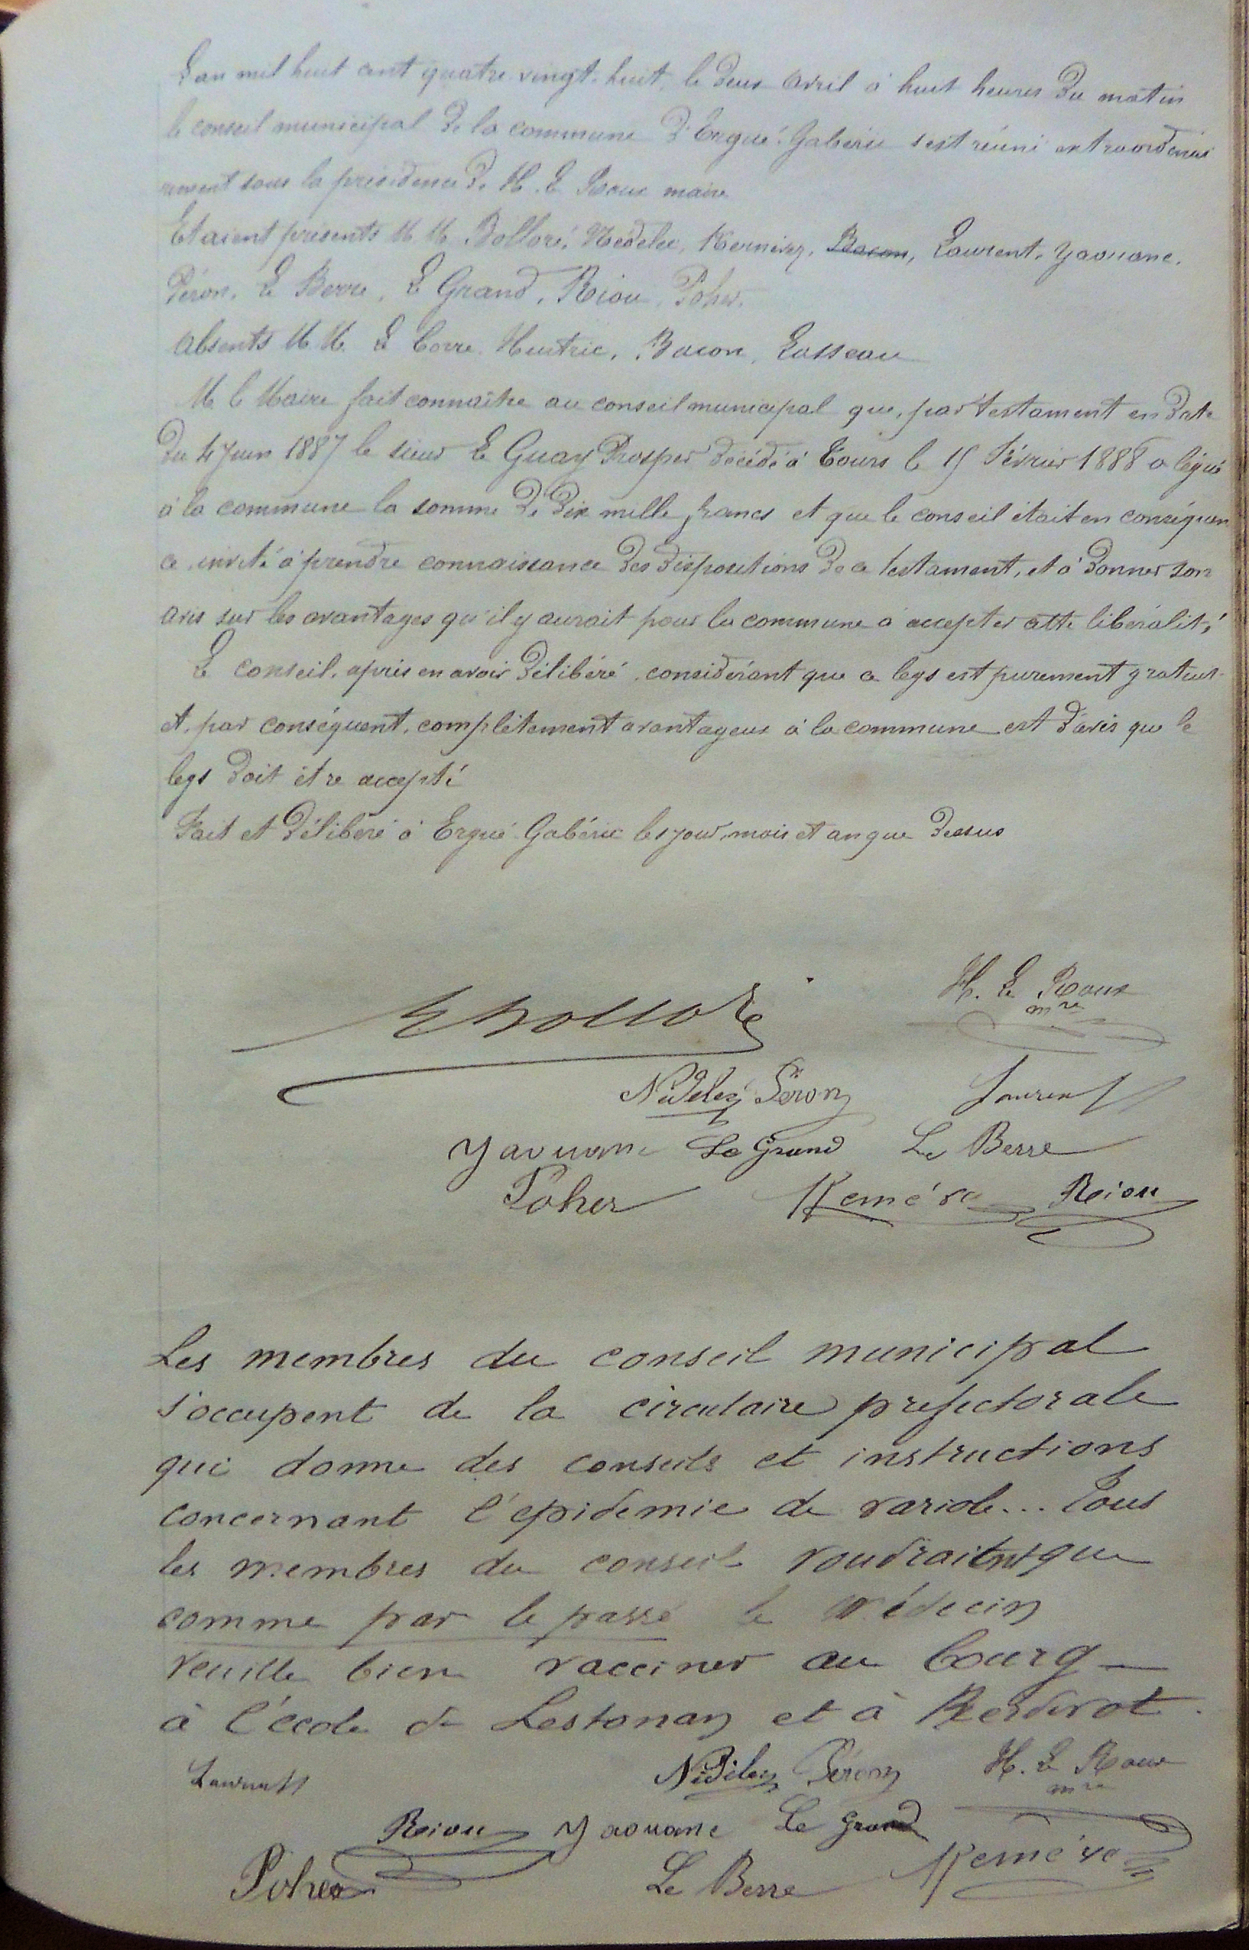 L'an mil huit cent quatre-vingt-huit, le deux avril à huit heures du matin
le conseil municipal de la commune d'Ergué-Gabéric s'est réuni extraordinai
rement sous la présidence de H. Le Roux maire
Etaient présents M M. Bolloré, Nédelec, Kernévez, Bacon, Laurent, Yaouanc.
Péron, Le Berre, Le Grand, Riou, Poher.
Absents M M. Le Corre, Huitric, Bacon, Lasseau
M le Maire fait connaître au conseil municipal que, par testament en date
du 4 Juin 1887 le sieur Le Guay Prosper décédé à Tours le 15 Février 1888 a légué
à la commune la somme de dix mille francs et que le conseil était en conséquen
ce invité à prendre connaissance des dispositions de ce testament, et à donner son
avis sur les avantages qu'il y aurait pour la commune à accepter cette libéralité
Le conseil, après en avoir délibéré, considérant que ce legs est purement gratuit
et, par conséquent, complètement avantageux à la commune est d'avis que le
legs doit être accepté
Fait et délibéré à Ergué-Gabéric les jour, mois et an que dessus
Bolloré H. Le Roux
mre
Nédelec Péron Laurent
Yaouanc Le Grand Le Berre
Poher Kerneve Riou
Les membres du conseil municipal
s'occupent de la circulaire prefectorale
qui donne des conseils et instructions
concernant l'épidemie de variole... Tous
les membres du conseil voudraient que
comme par le passé le médecin
veuille bien vacciner au bourg
à l'école de Lestonan et à Kerdevot.
Laurent Nédelec Péron H. Le Roux
mre
Riou Yaouanc Le Grand
Poher Le Berre Kerneve